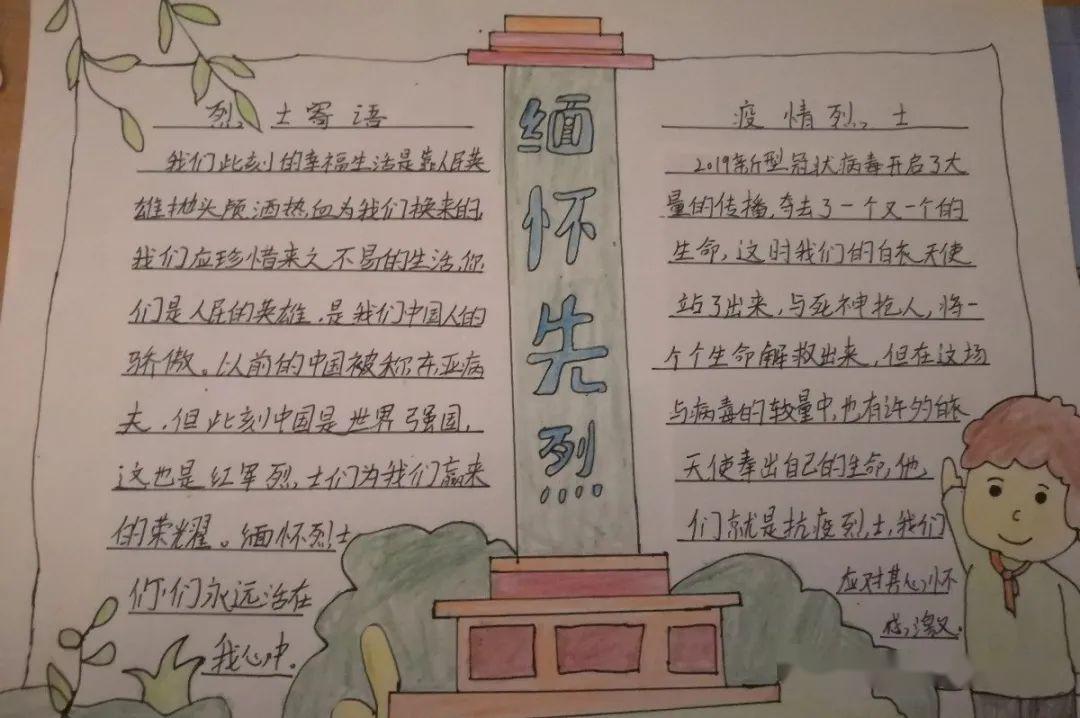 缅怀先烈
烈士寄语
我们此刻的幸福生活是靠人民英
雄抛头颅洒热血为我们换来的,
我们应珍惜来之不易的生活,你
们是人民的英雄,是我们中国人的
骄傲。以前的中国被称东亚病
夫,但此刻中国是世界强国,
这也是红军烈士们为我们赢来
的荣耀。缅怀烈士
你们永远活在
我心中.
疫情烈士
2019新型冠状病毒开启了大
量的传播,夺去了一个又一个的
生命,这时我们的白衣天使
站了出来,与死神抢人,将一
个个生命解救出来,但在这场
与病毒的较量中,也有许多白衣
天使奉出自己的生命,他
们就是抗疫烈士,我们
应对其心怀
感激.